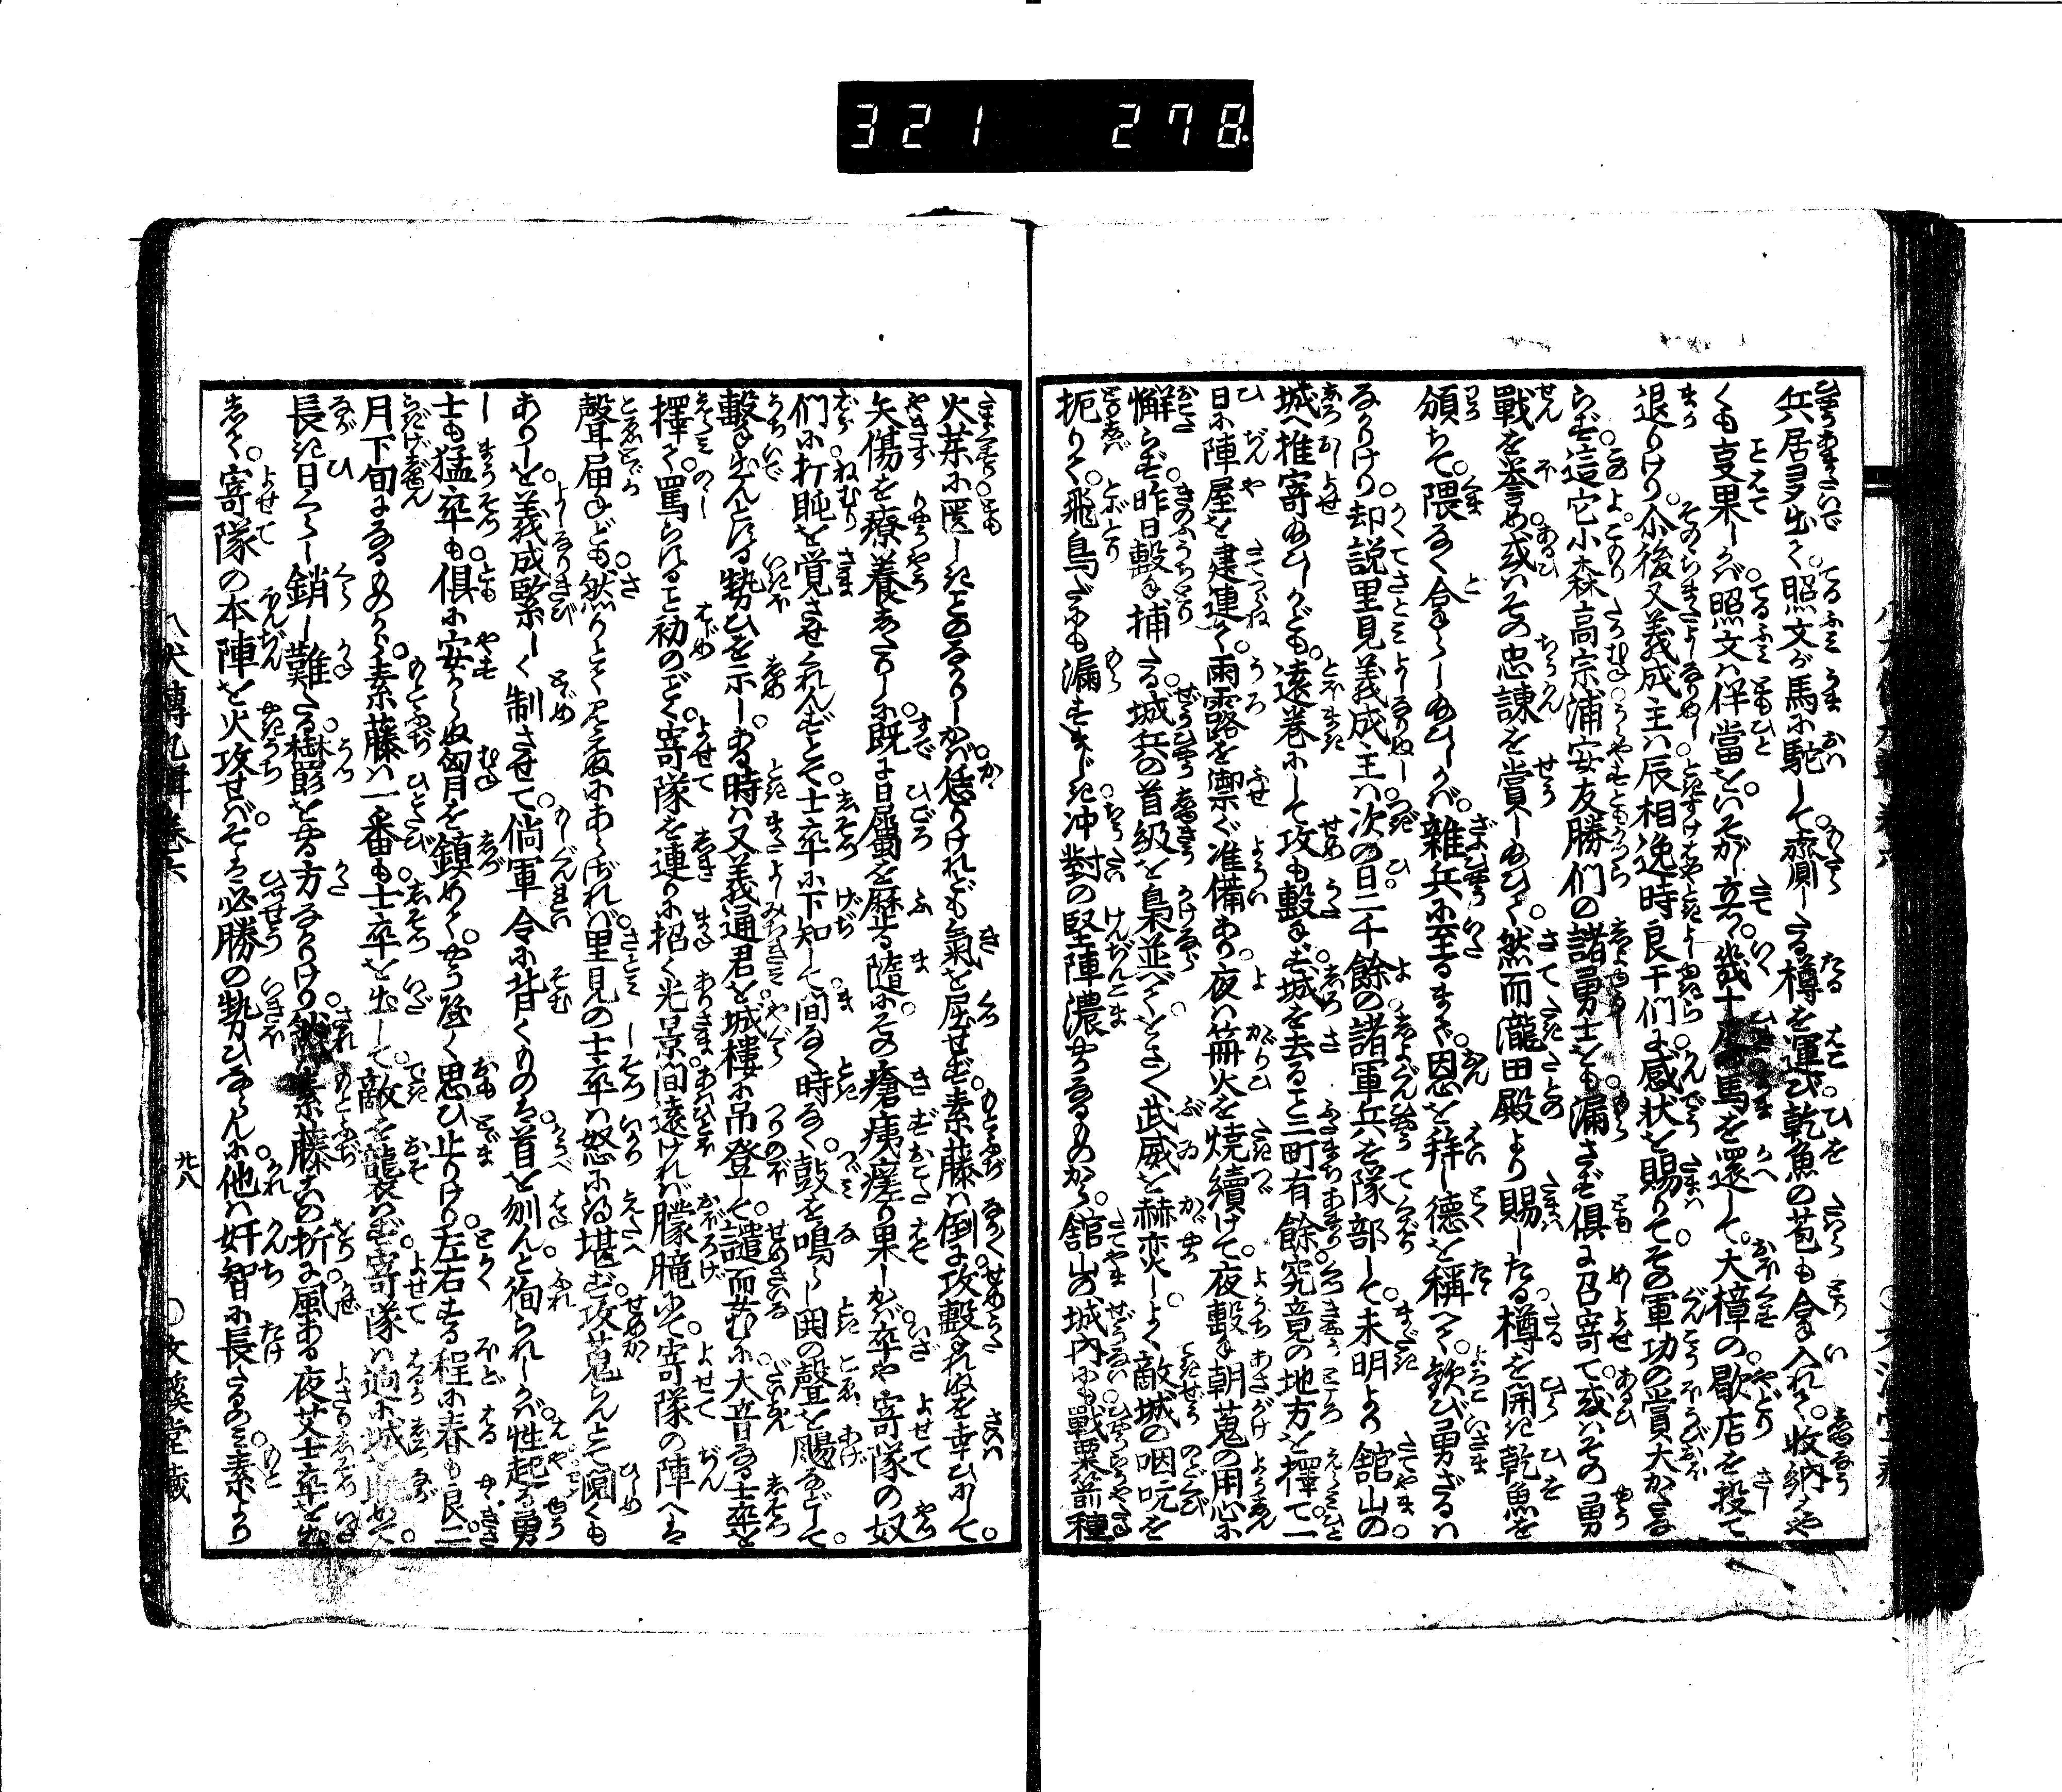 321 278
兵居多出て。照文が馬に駝して齎しゝる樽を運び乾魚の苞も合入れて。收納るや
くも亨果しかば照文は伴當を。いそがし立て。幾十疋の馬を還して。大樟の歇店を投て
退りけり。尒後又義成主は辰相逸時良干們に感状を賜りて。その軍功の賞大かたな
らず。這它小森高宗浦安友勝們の諸勇士をも漏さず倶に召寄て。或はその勇
戰を誉め或はその忠諫を賞しぬひて。然而瀧田殿より賜したる樽を開き乾魚を
頒ちて。隈なく合らしぬひしかば。雜兵に至るまで恩を拜し德を稱へて。歓び勇ざるは
なかりけり。却説里見義成主は次の日二千餘の諸軍兵を隊部して。未明より舘山の
城へ推寄ぬひしかども。遠巻にして攻も敷ず城を去ると三町有餘究竟の地方を擇て一
日に陣屋を建連て。雨露を禦ぐ准備あり。夜は篝火を焼續けて。夜撃朝蒐の用心に
懈らず。昨日撃捕たる。城兵の首級を梟並べて武威を赫奕しよく敵城の咽吭を
扼りて。飛鳥だにも漏すまじき冲對の堅陣濃やかなるものから。舘山の城内にも戰粟箭種
火薬に匱しきとのなかりしかば。恁りけれども氣を屈せず。素藤は倒に攻撃れぬを幸ひにして。
矢傷を療養したりしに既に日属を歴る隨にその瘡痍瘥り果しかば。卒や寄隊の奴
們に打盹を覚させくれんずとて。士卒に下知して間なく時なく。鼓を鳴らし鬨の聲を颺などして
撃も出んとする勢ひを示し。ある時は又義通君を城樓に吊登して。譴而苛に大音なる士卒を
擇て。罵らすると初のごとく。寄隊を連りに招く光景間遠ければ朦朧にて寄隊の陣へは
聲届ねども。然りとて見えぬにあらざれば。里見の士卒は怒に得堪ず。攻蒐らんとて鬩くも
ありしを。義成緊しく制させて。倘軍令に背くものは。首を刎んと徇られしかば。性起る勇
士も猛卒も。倶に安からぬ匈月を鎮めて。やうやく思ひ止りけり。左右する程に春も良。二
月下旬になるものから。素藤は一番も士卒を出して。敵を襲はず。寄隊は逈に城
長き日くらし銷し難たる樹影をなる方なかりけり。然素藤はこの折に風ある夜艾士卒を出
して。寄隊の本陣を火攻せば。そは必勝の勢ひならんに。他は奸智に長たるのみ。素より
八犬傳九輯巻六
廿八
文溪堂藏